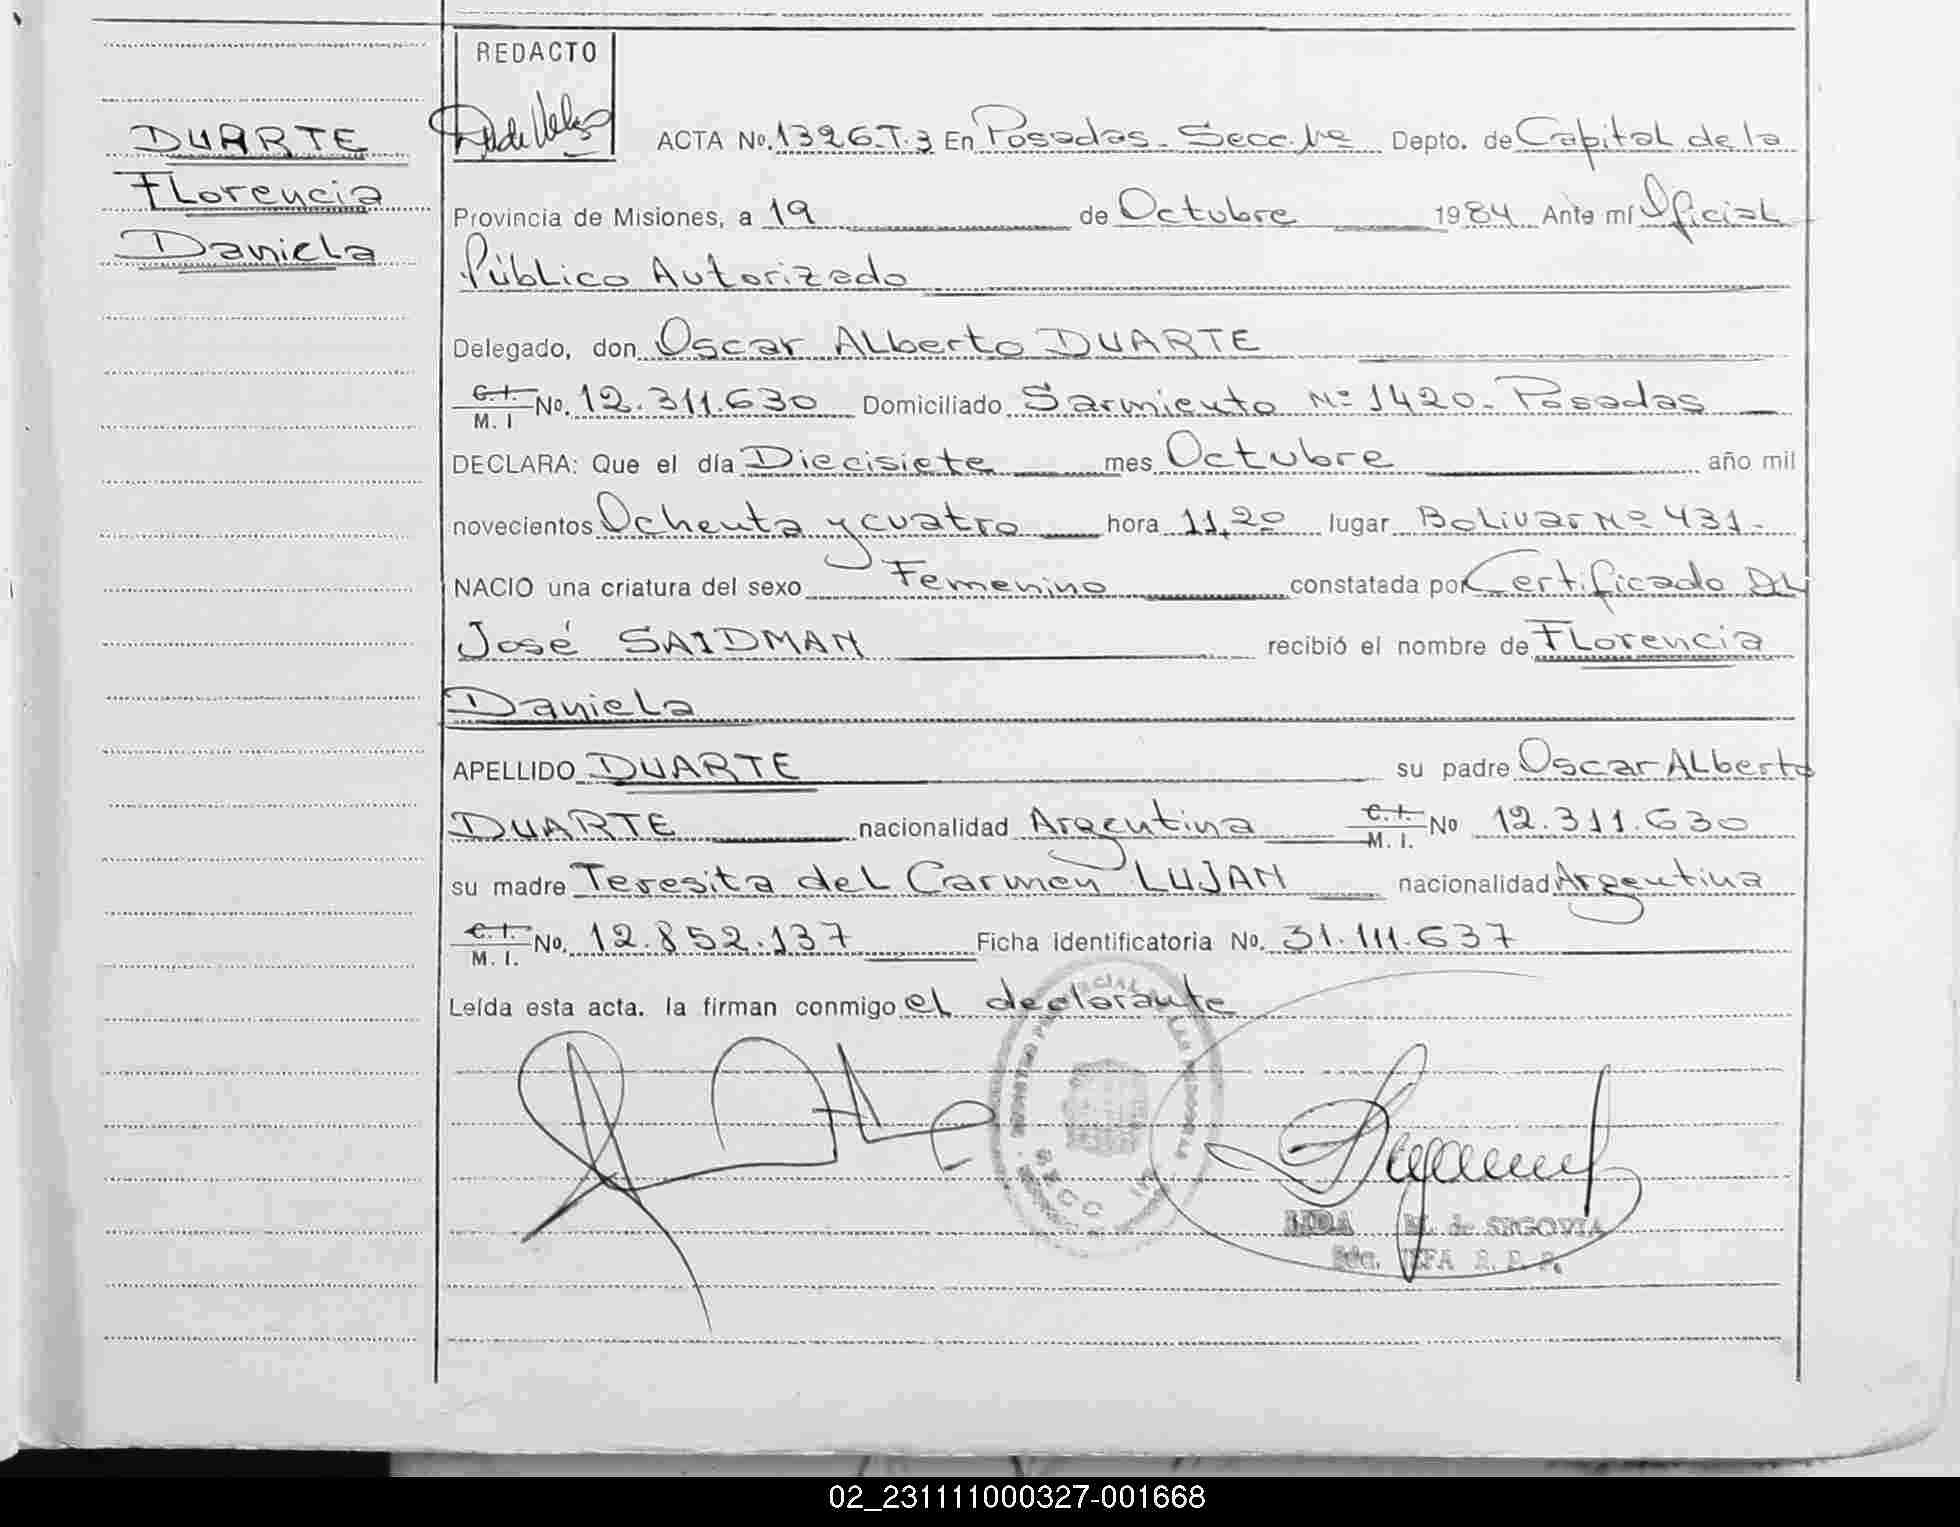 REDACTO
DUARTE
Florencia
Daniela
ACTA No. 1326-T.3 En Posadas - Secc. 1ra Depto. de Capital de la
Provincia de Misiones, a 19 de Octubre 1984 Ante mí Oficial
Público Autorizado
Delegado, don Oscar Alberto DUARTE
C.I. M. I No. 12.311.630 Domiciliado Sarmiento Nº 1420 - Posadas
DECLARA: Que el día Diecisiete mes Octubre año mil
novecientos Ochenta y cuatro hora 11,20 lugar Bolivar Nº 431.
NACIO una criatura del sexo Femenino constatada por Certificado Dr
José SAIDMAN recibió el nombre de Florencia
Daniela
APELLIDO DUARTE su padre Oscar Alberto
DUARTE nacionalidad Argentina C.I. M. I. No 12.311.630
su madre Teresita del Carmen LUJAN nacionalidad Argentina
C.I. M. I. No. 12.852.137 Ficha Identificatoria No. 31.111.637
Leída esta acta. la firman conmigo el declarante
SECC
M. de SEGOVIA
02_231111000327-001668